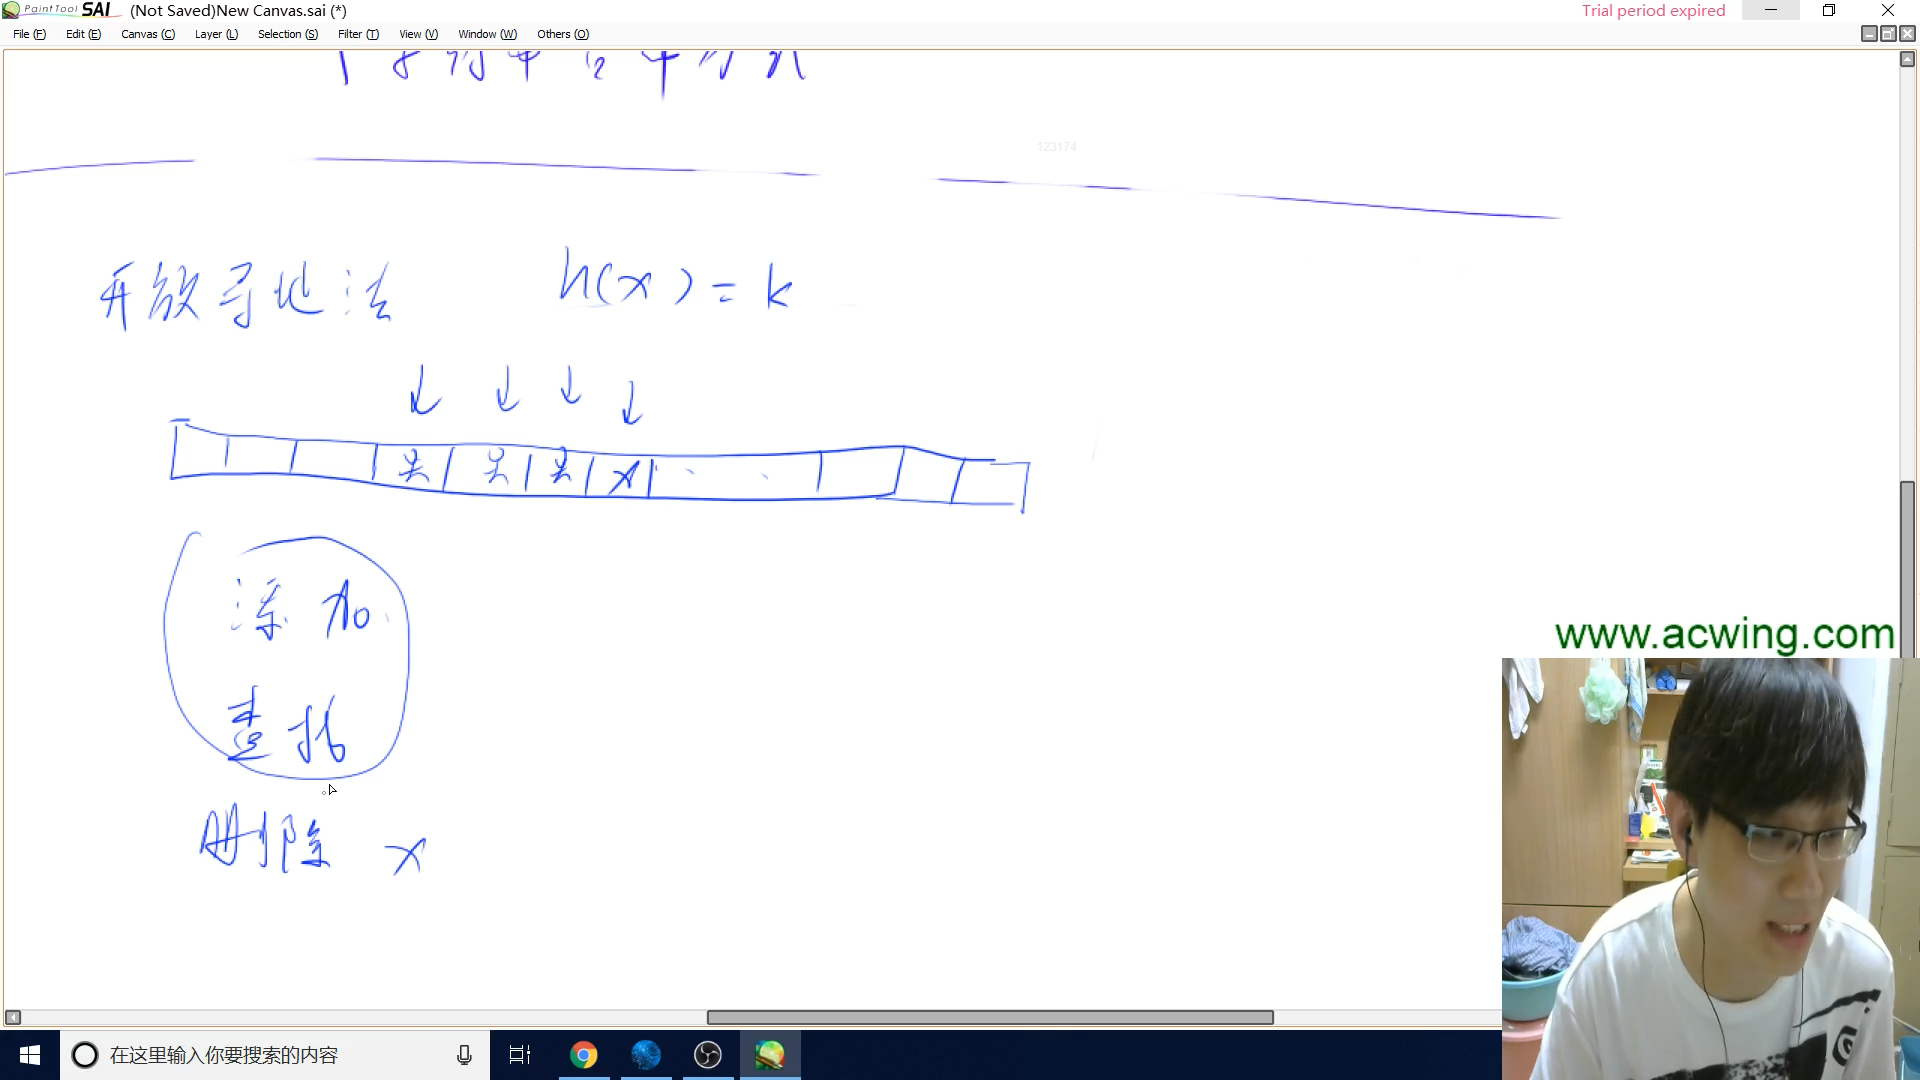 PaintTool SAI (Not Saved)New Canvas.sai (*)
Trial period expired
File (F) Edit (E) Canvas (C) Layer (L) Selection (S) Filter (T) View (V) Window (W) Others (O)
123174
开放寻地法 h(x) = k
x
添加
查找
删除 x
www.acwing.com
在这里输入你要搜索的内容